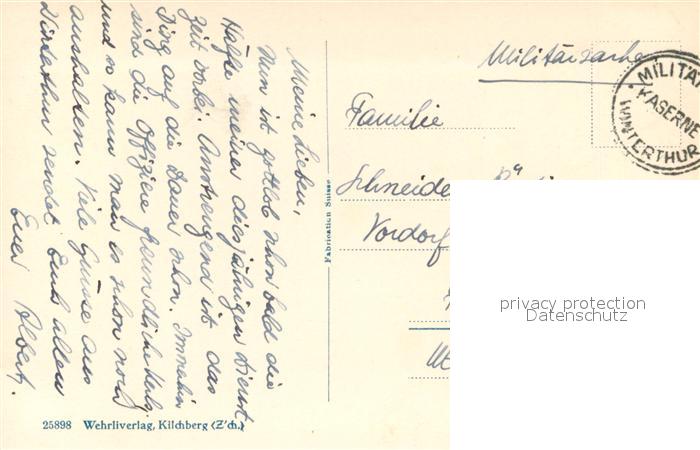 Meine Lieben,
Nun ist gottlob schon bald die
Hälfte meiner diesjährigen Dienst
Zeit vorbei. Anstrengend ist das
Ding auf die Dauer schon. Immerhin
sind die Offiziere freundliche Kerls
und so kann man es schon noch
aushalten. Viele Grüsse aus
Winterthur sendet Euch allen
Euer Albert.
25898 Wehrliverlag, Kilchberg (Z'ch.)
Fabrication Suisse
Militärsache
MILITÄR
KASERNE
WINTERTHUR
Familie
Schneider
Vordorf
privacy protection
Datenschutz